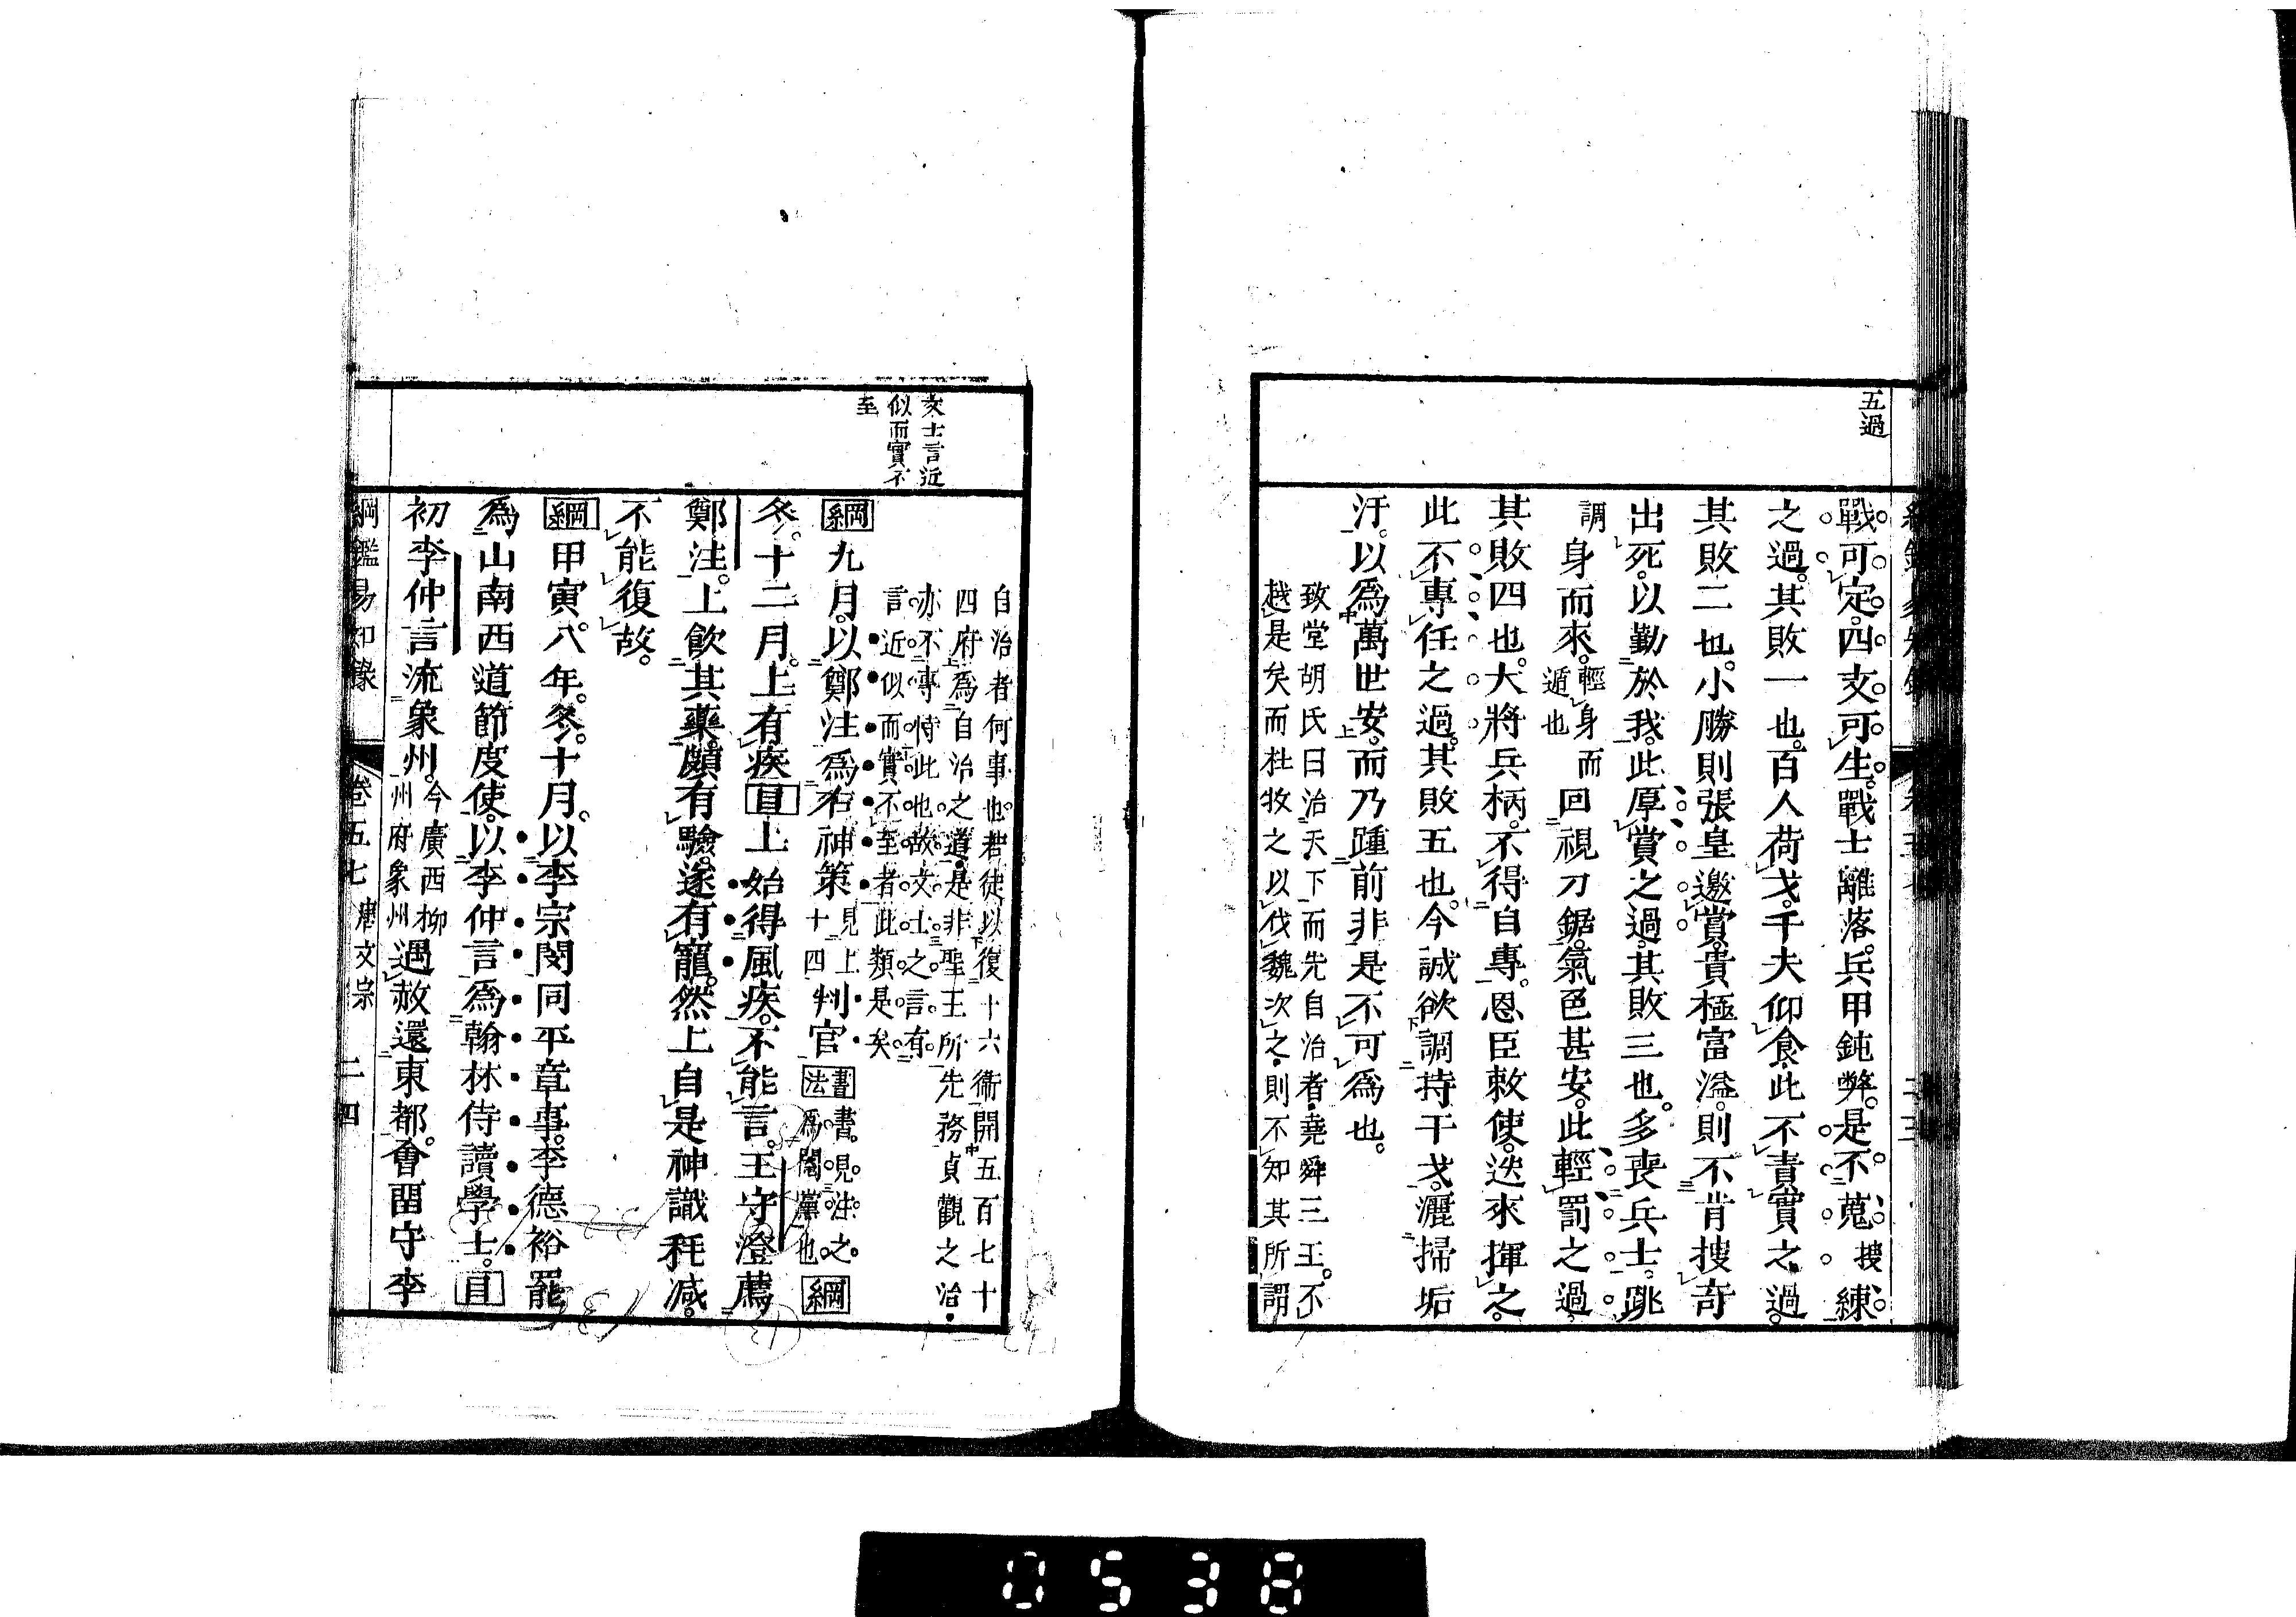 五過
戰可定。四支可生。戰士離落。兵甲鈍弊。是不蒐搜練
之過。其敗一也。百人荷戈。千夫仰食。此不責實之過。
其敗二也。小勝則張皇邀賞。貴極富溢。則不肯搜奇
出死。以勤於我。此厚賞之過。其敗三也。多喪兵士。跳
調身而來。輕身而遁也回視刀鋸。氣色甚安。此輕罰之過。
其敗四也。大將兵柄。不得自專。恩臣敕使。迭來揮之。
此不專任之過。其敗五也。今誠欲調持干戈。灑掃垢
汙。以爲萬世安。而乃踵前非。是不可爲也。
致堂胡氏曰治天下而先自治者堯舜三王。不
越是矣而杜牧之以伐魏次之則不知其所謂
文士言近
似而實不
至
自治者何事也。若徒以復十六衞開五百七十
四府爲自治之道。是非聖王所先務貞觀之治
亦不專恃此也。故文士之言有
言近似而實不至者此類是矣
綱九月。以鄭注爲右神策見上十四判官書法書。見注之爲閹黨也綱
冬。十二月。上有疾目上始得風疾。不能言。王守澄薦
鄭注。上飲其藥。頗有驗。遂有寵。然上自是神識耗減。
不能復故。
綱甲寅。八年。冬。十月。以李宗閔同平章事。李德裕罷
爲山南西道節度使。以李仲言爲翰林侍讀學士。目
初李仲言流象州。今廣西柳州府象州遇赦還東都。會畱守李
綱鑑易知錄 卷五七 唐文宗 二四
0538